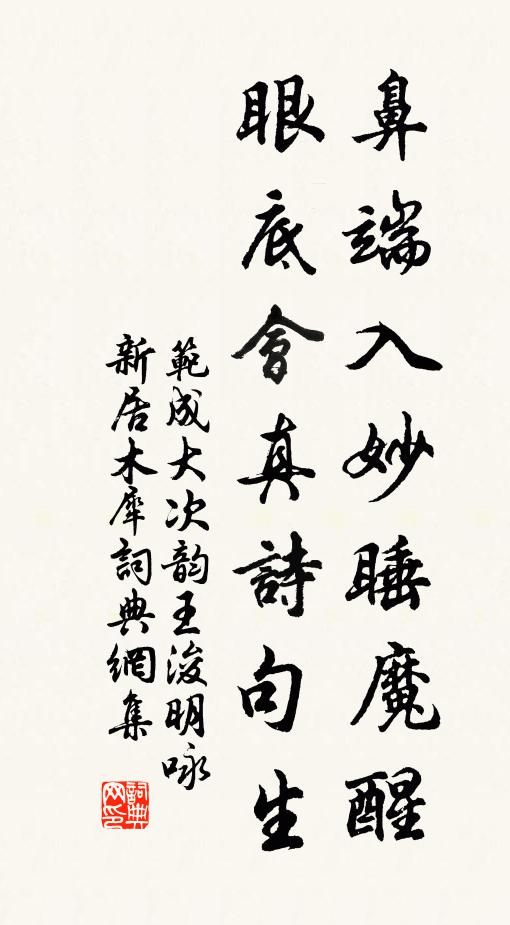 鼻端入妙睡魔醒
眼底會真詩句生
範成大次韵王浚明咏
新居木犀詞典網集
詞典
网印